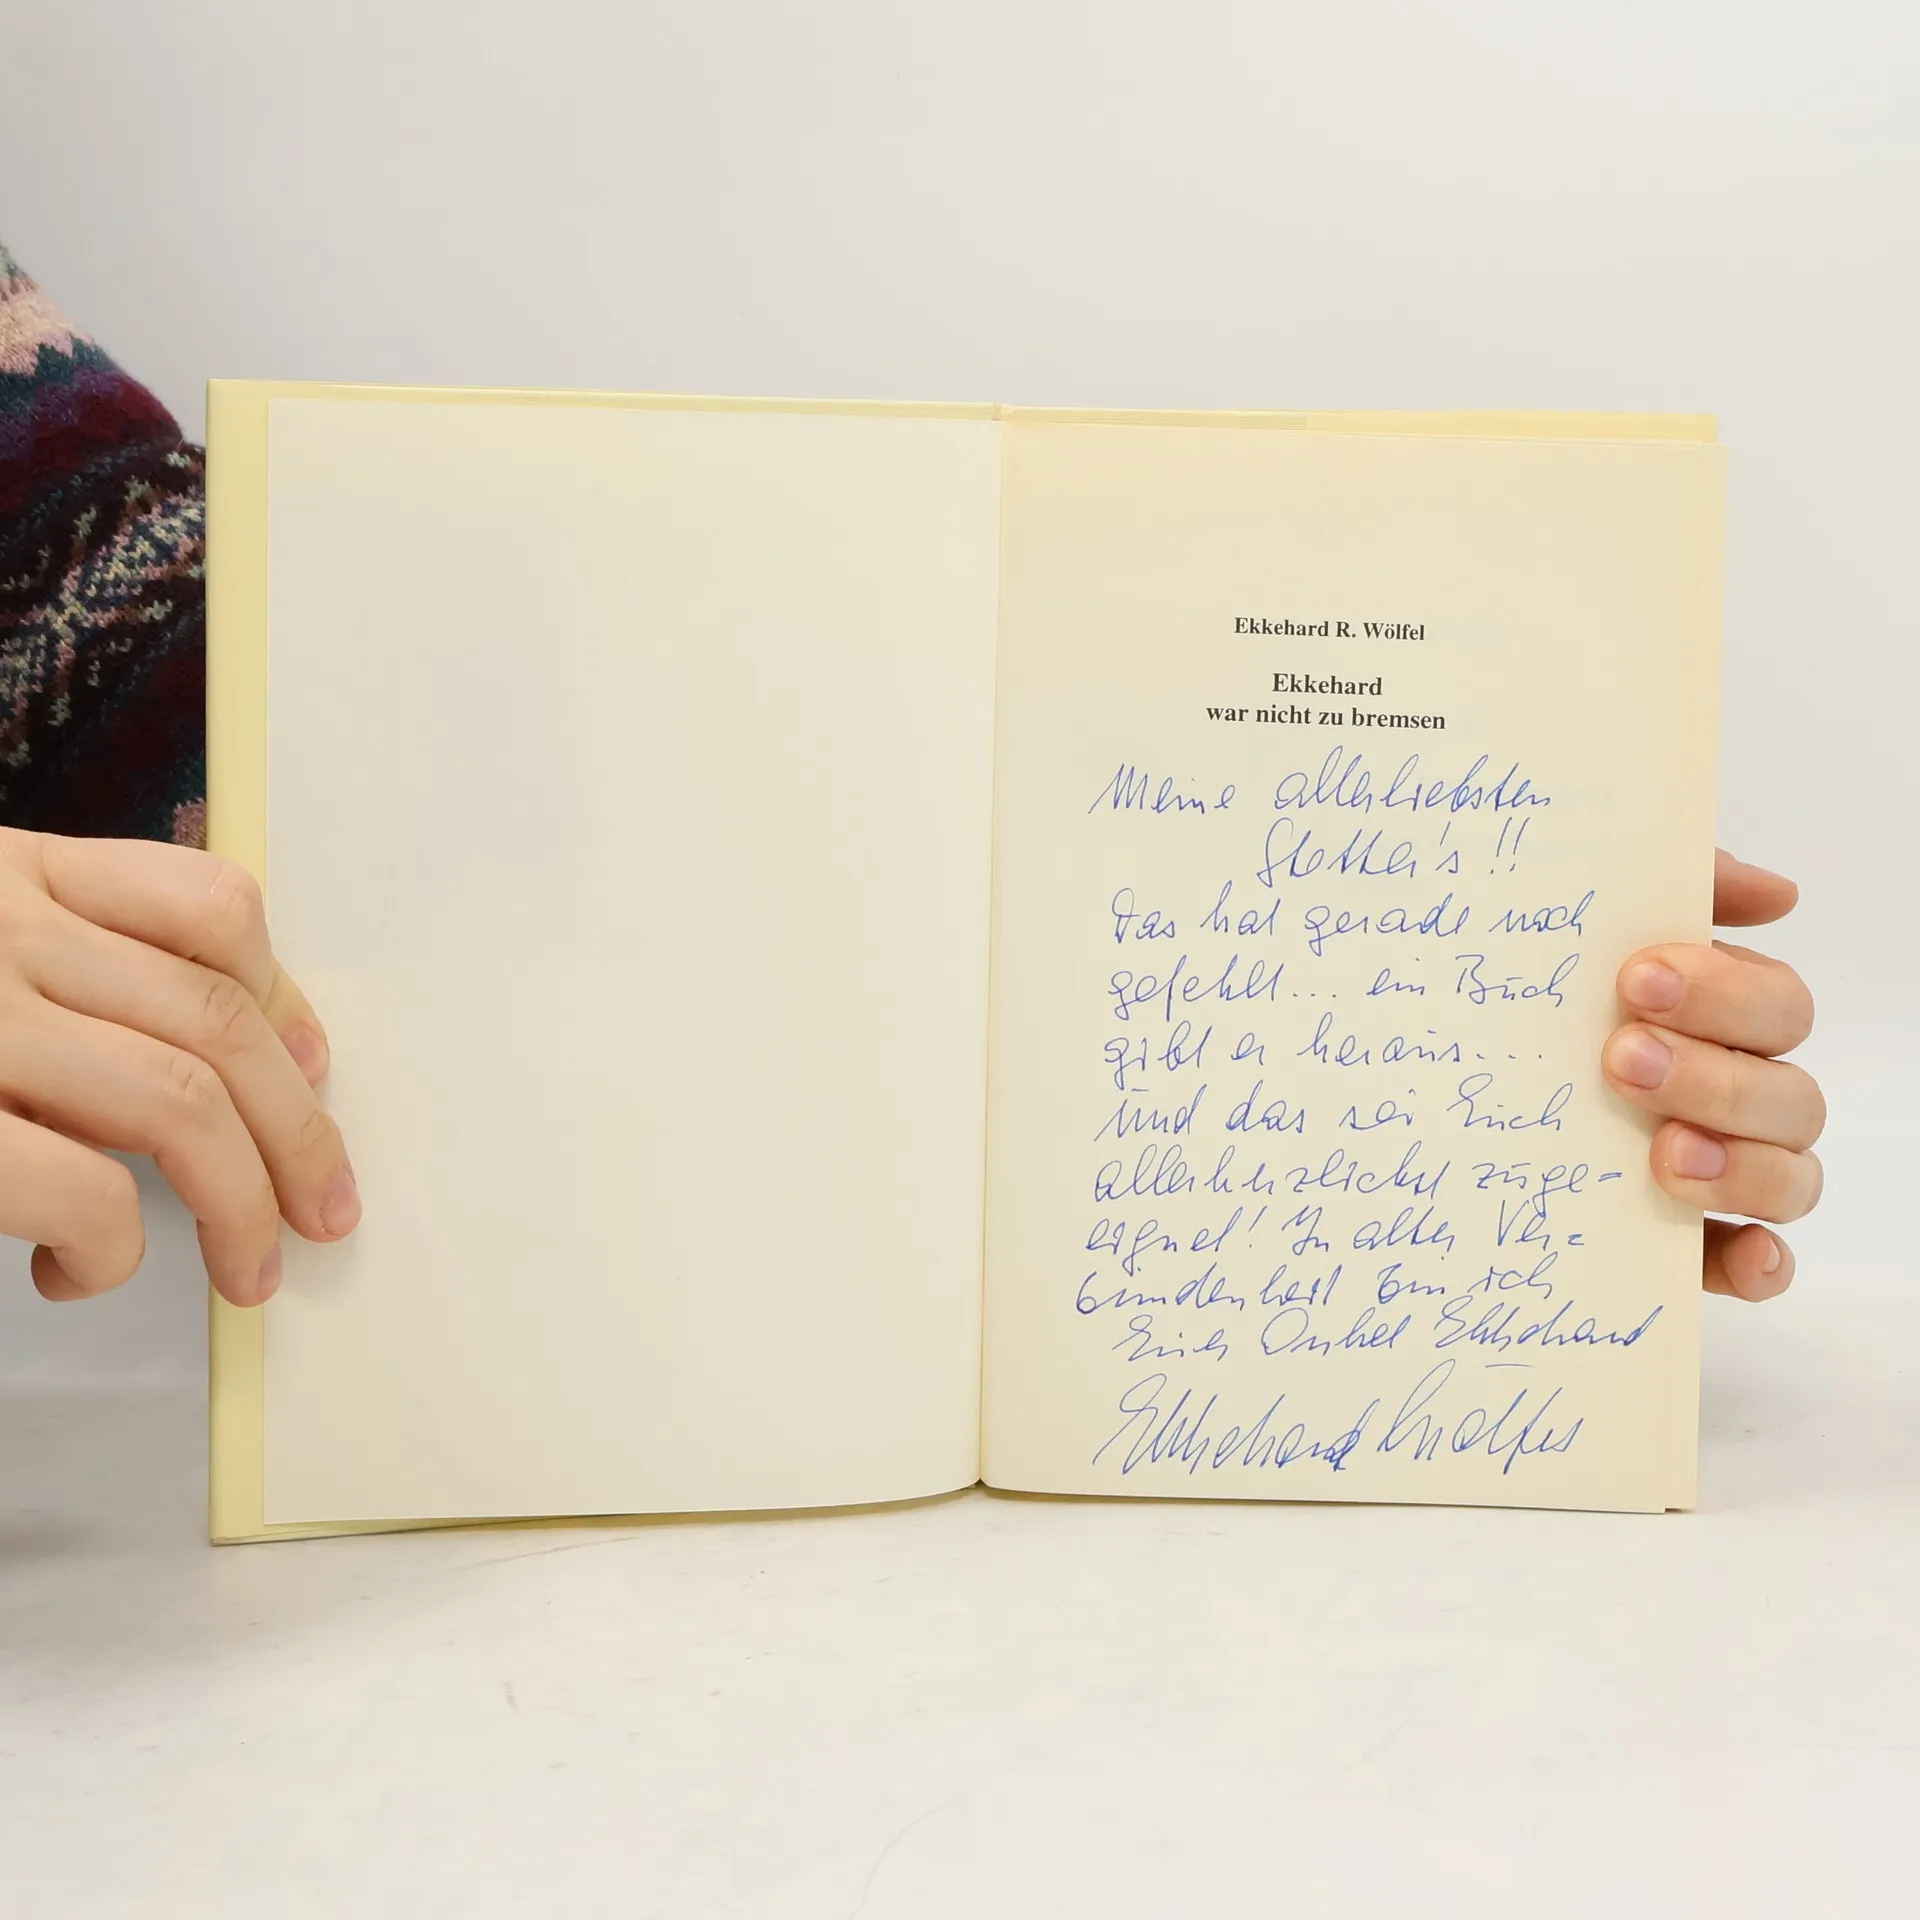 Ekkehard R. Wölfel
Ekkehard
war nicht zu bremsen
Meine allerliebsten
Stetter's !!
Das hat gerade noch
gefehlt... ein Buch
gibt er heraus...
und das sei Euch
allerherzlichst zuge=
eignet! In alter Ver=
bundenheit bin ich
Euer Onkel Ekkehard
Ekkehard Wölfel